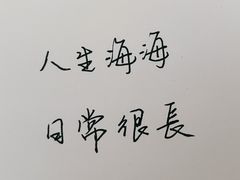 人生海海
日常很長